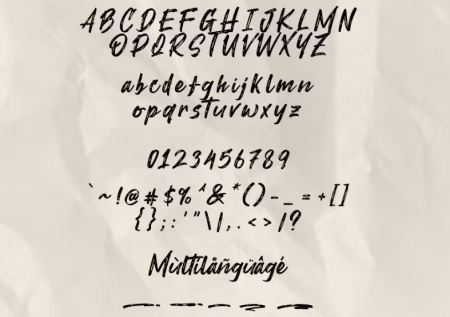 ABCDEFGHIJKLMN
OPQRSTUVWXYZ
abcdefghijklmn
opqrstuvwxyz
0123456789
`~!@#$%^&*()-_=+[]
{};:'"\|,.<>/?
Mùltilåñgüâgé